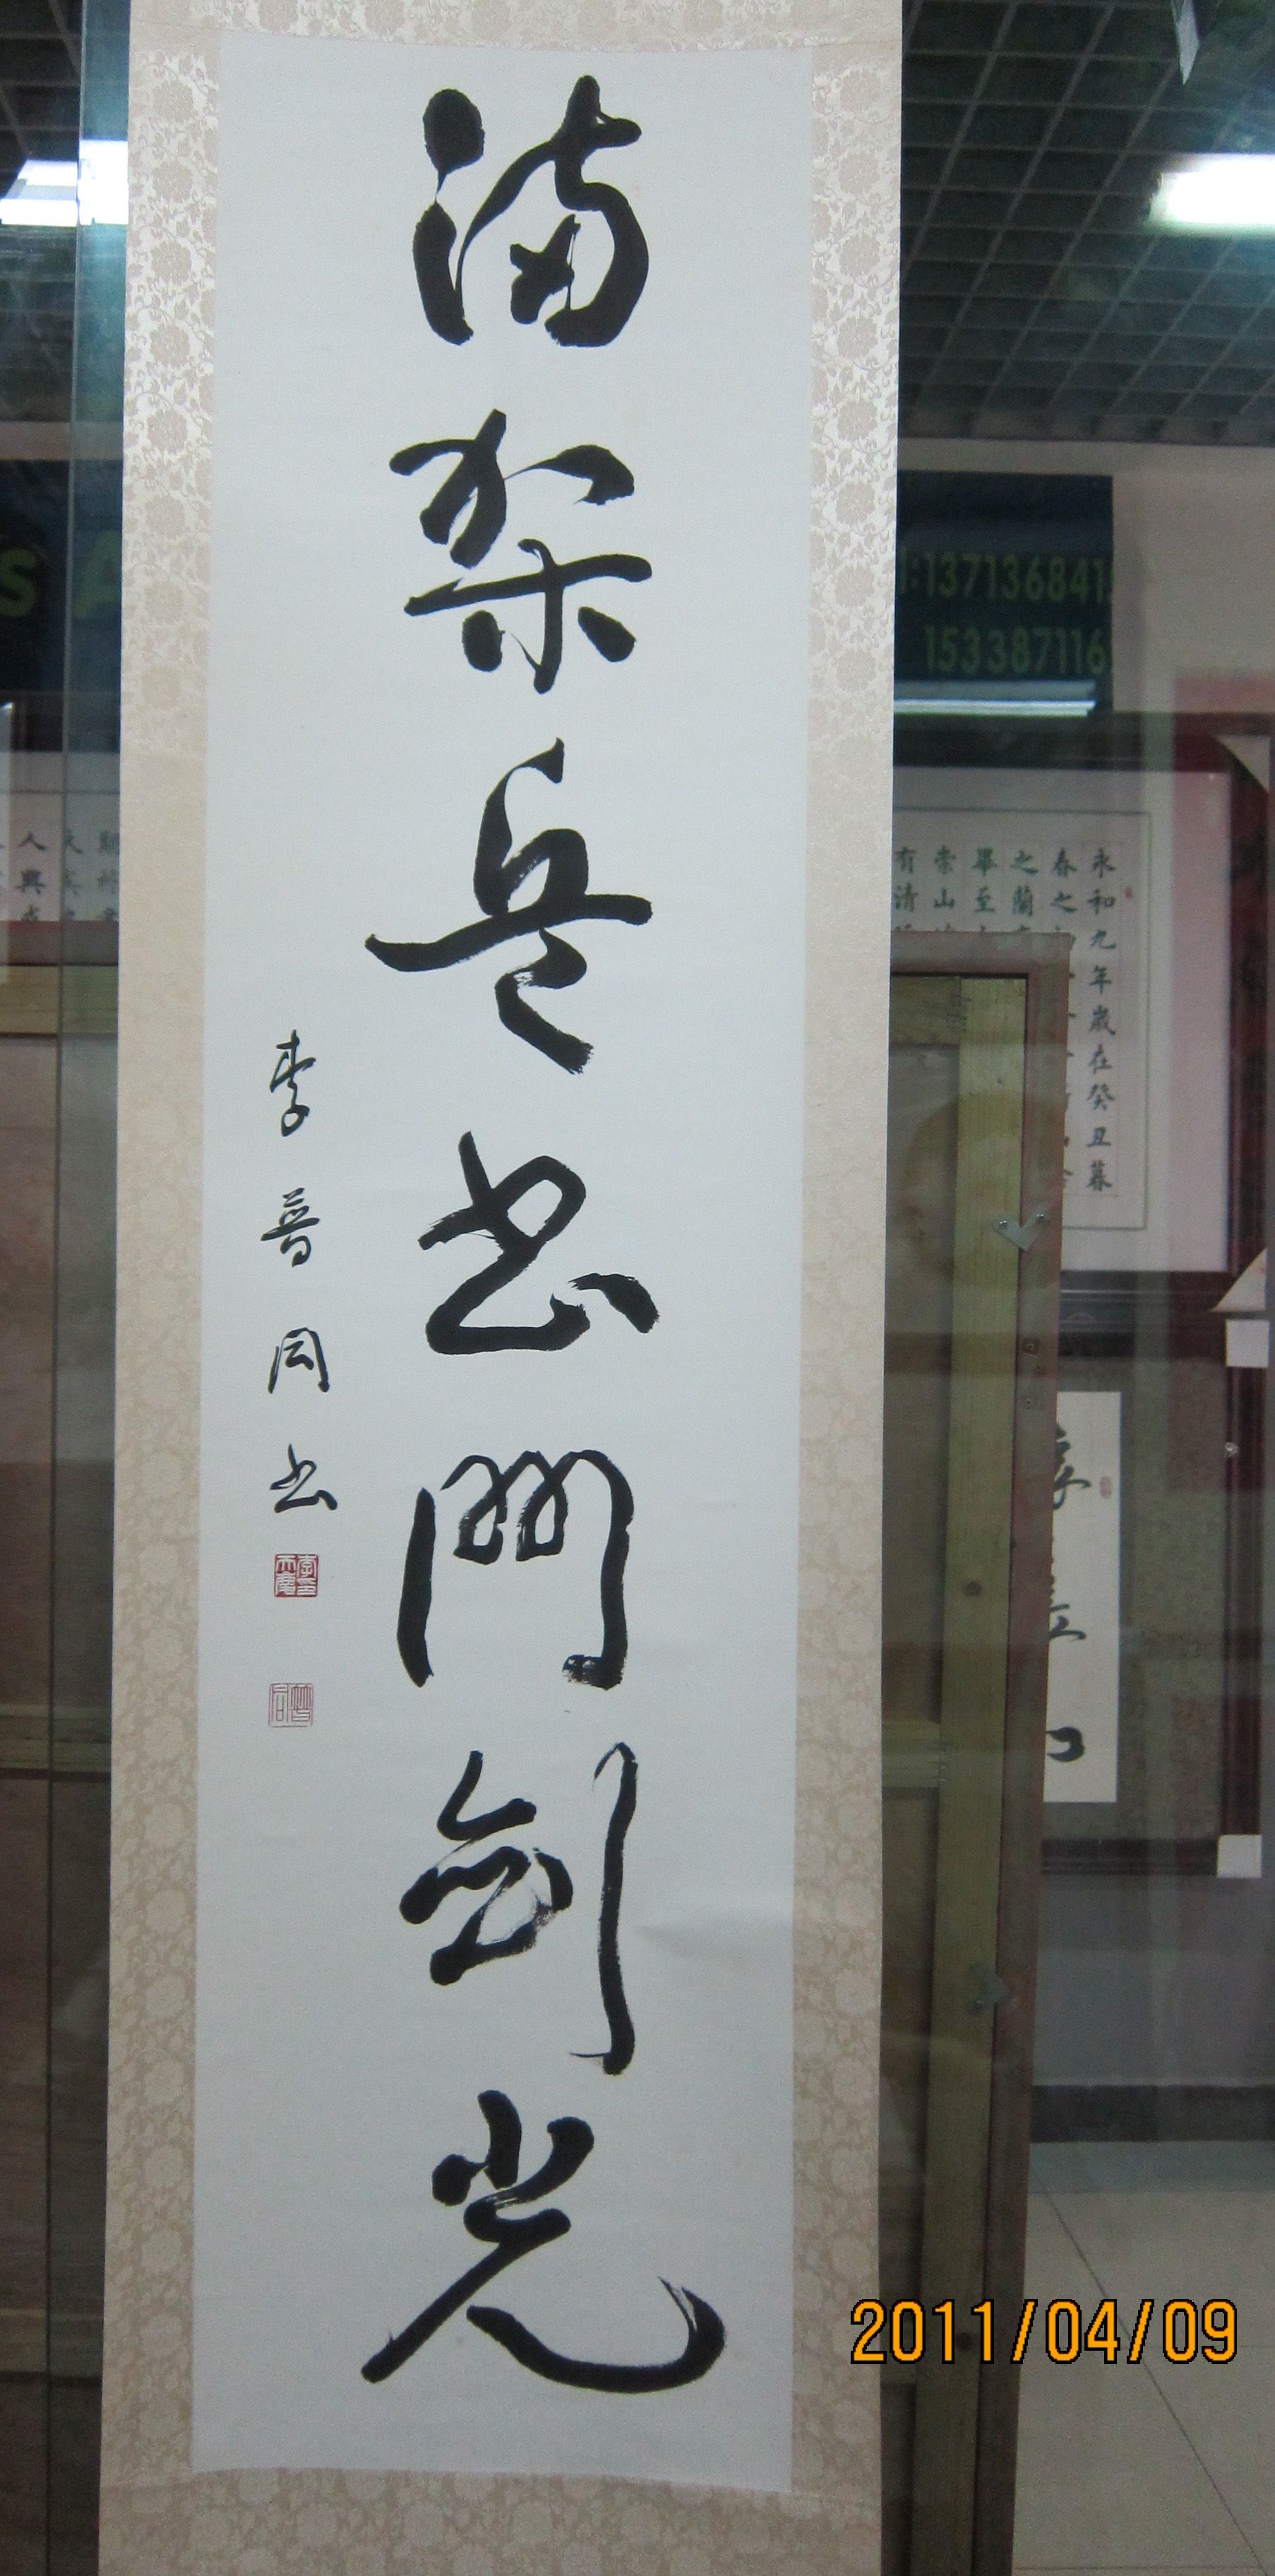 满架兵书鬥剑光
李普同书
李普同
:137136841
153387116
永和九年歲在癸丑暮
春之
之蘭
畢至
崇山
有清
人興
2011/04/09